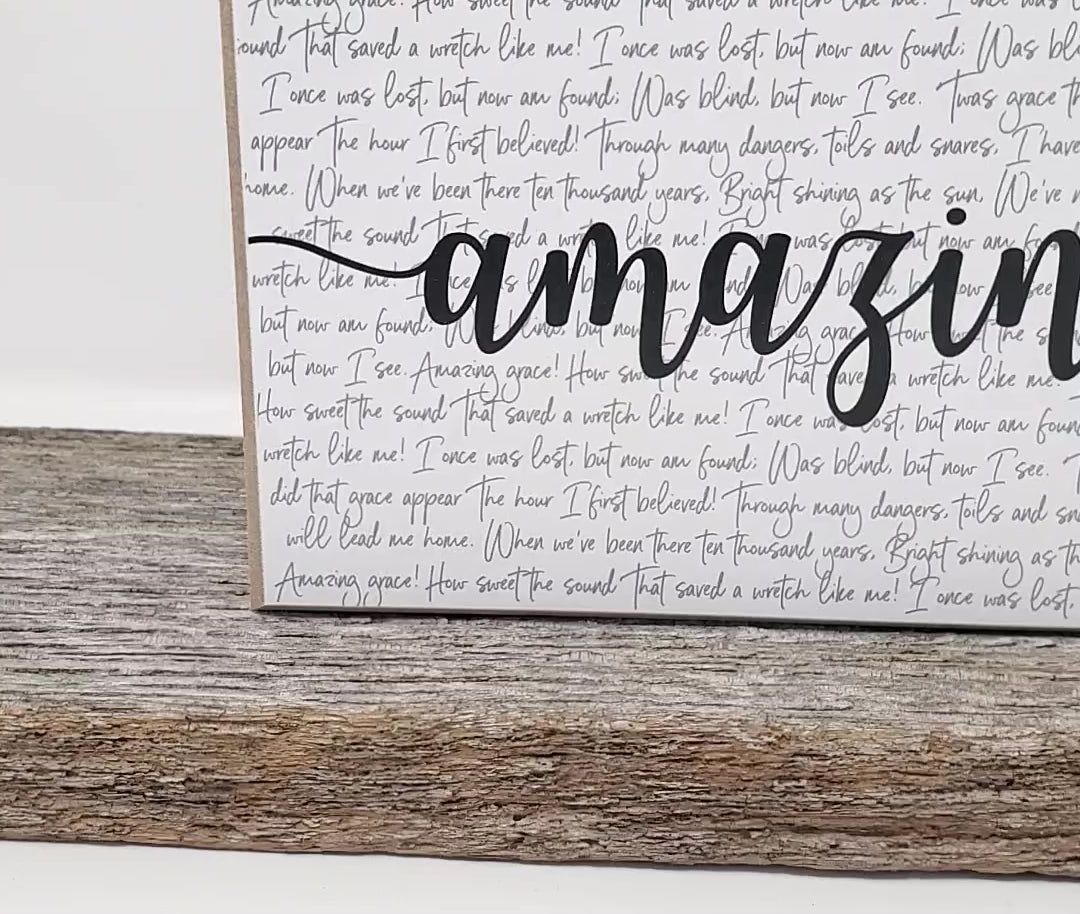 Amazing grace! How sweet the sound That saved a wretch like me! I once was
ound That saved a wretch like me! I once was lost, but now am found; Was bli
I once was lost, but now am found; Was blind, but now I see. 'Twas grace th
appear The hour I first believed! Through many dangers, toils and snares, I have
home. When we've been there ten thousand years, Bright shining as the sun, We've n
sweet the sound That saved a wretch like me! I was lost but now am fo
amazin
wretch like me! I once was lost but now am found; Was blind, but now I see
but now am found; Was blind, but now I see. Amazing grace How sweet the s
but now I see. Amazing grace! How sweet the sound That saved a wretch like me!
How sweet the sound That saved a wretch like me! I once was lost, but now am foun
wretch like me! I once was lost, but now am found; Was blind, but now I see. 'T
did that grace appear The hour I first believed! Through many dangers, toils and sn
will lead me home. When we've been there ten thousand years, Bright shining as th
Amazing grace! How sweet the sound That saved a wretch like me! I once was lost,